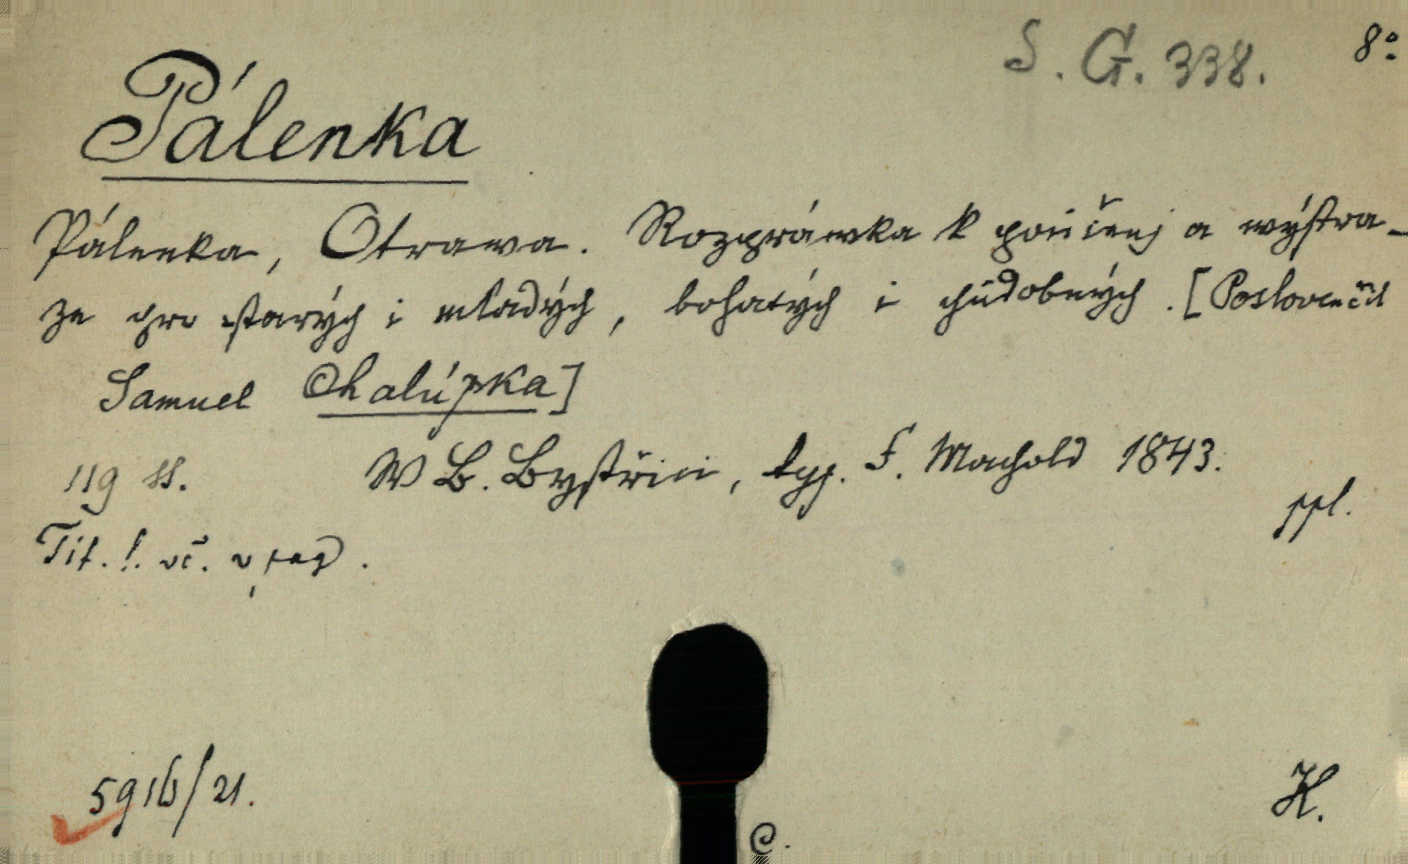 S. G. 338. 8°
Pálenka
Pálenka, Otrawa. Rozprávka k poučenj a wýstra-
ze pro starých i mladých, bohatých i chúdobných. [Poslovenčil
Samuel Chalúpka]
119 ss. W B. Bystřici, typ. F. Machold 1843.
ppl.
Tit. l.
5916/21.
K.
C.